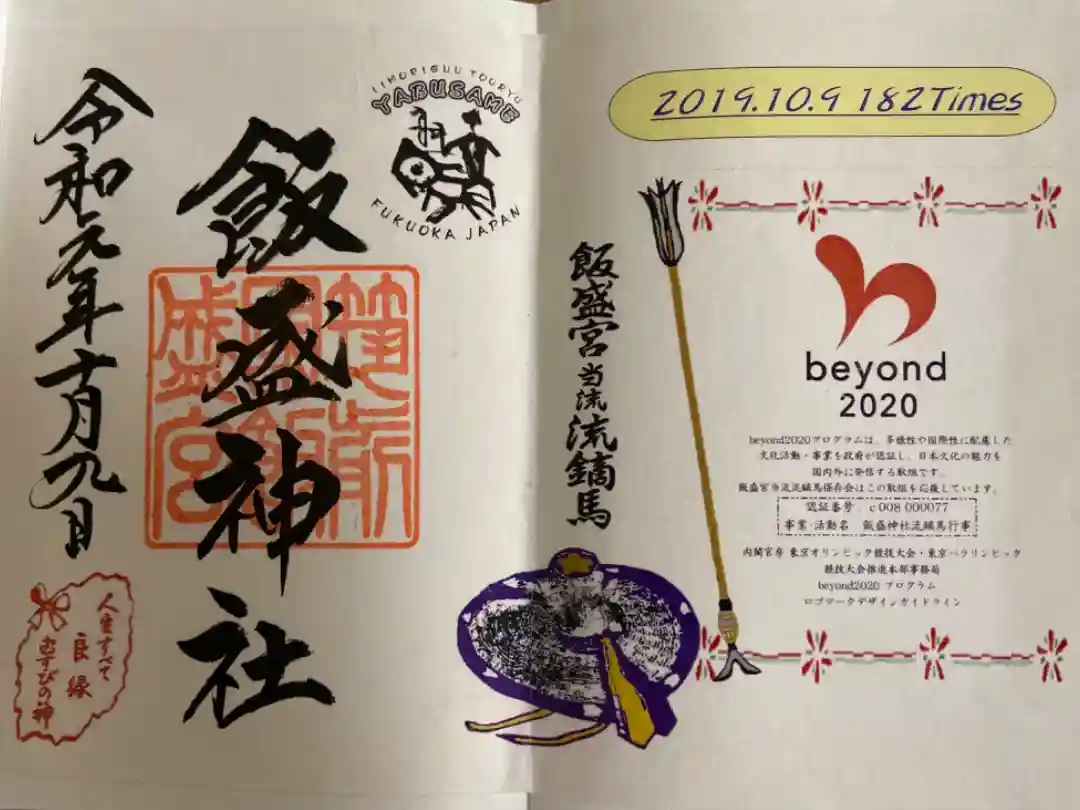 令和元年十月九日
飯盛神社
IIMORIGUU TOURYU
YABUSAME
FUKUOKA JAPAN
人生すべて
良縁
むすびの神
飯盛宮当流流鏑馬
2019.10.9 182Times
beyond
2020
beyond2020プログラムは、多様性や国際性に配慮した
文化活動・事業を政府が認証し、日本文化の魅力を
国内外に発信する取組です。
飯盛宮当流流鏑馬保存会はこの取組を応援しています。
認証番号 c008 000077
事業・活動名 飯盛神社流鏑馬行事
内閣官房 東京オリンピック競技大会・東京パラリンピック
競技大会推進本部事務局
beyond2020 プログラム
ロゴマークデザインガイドライン